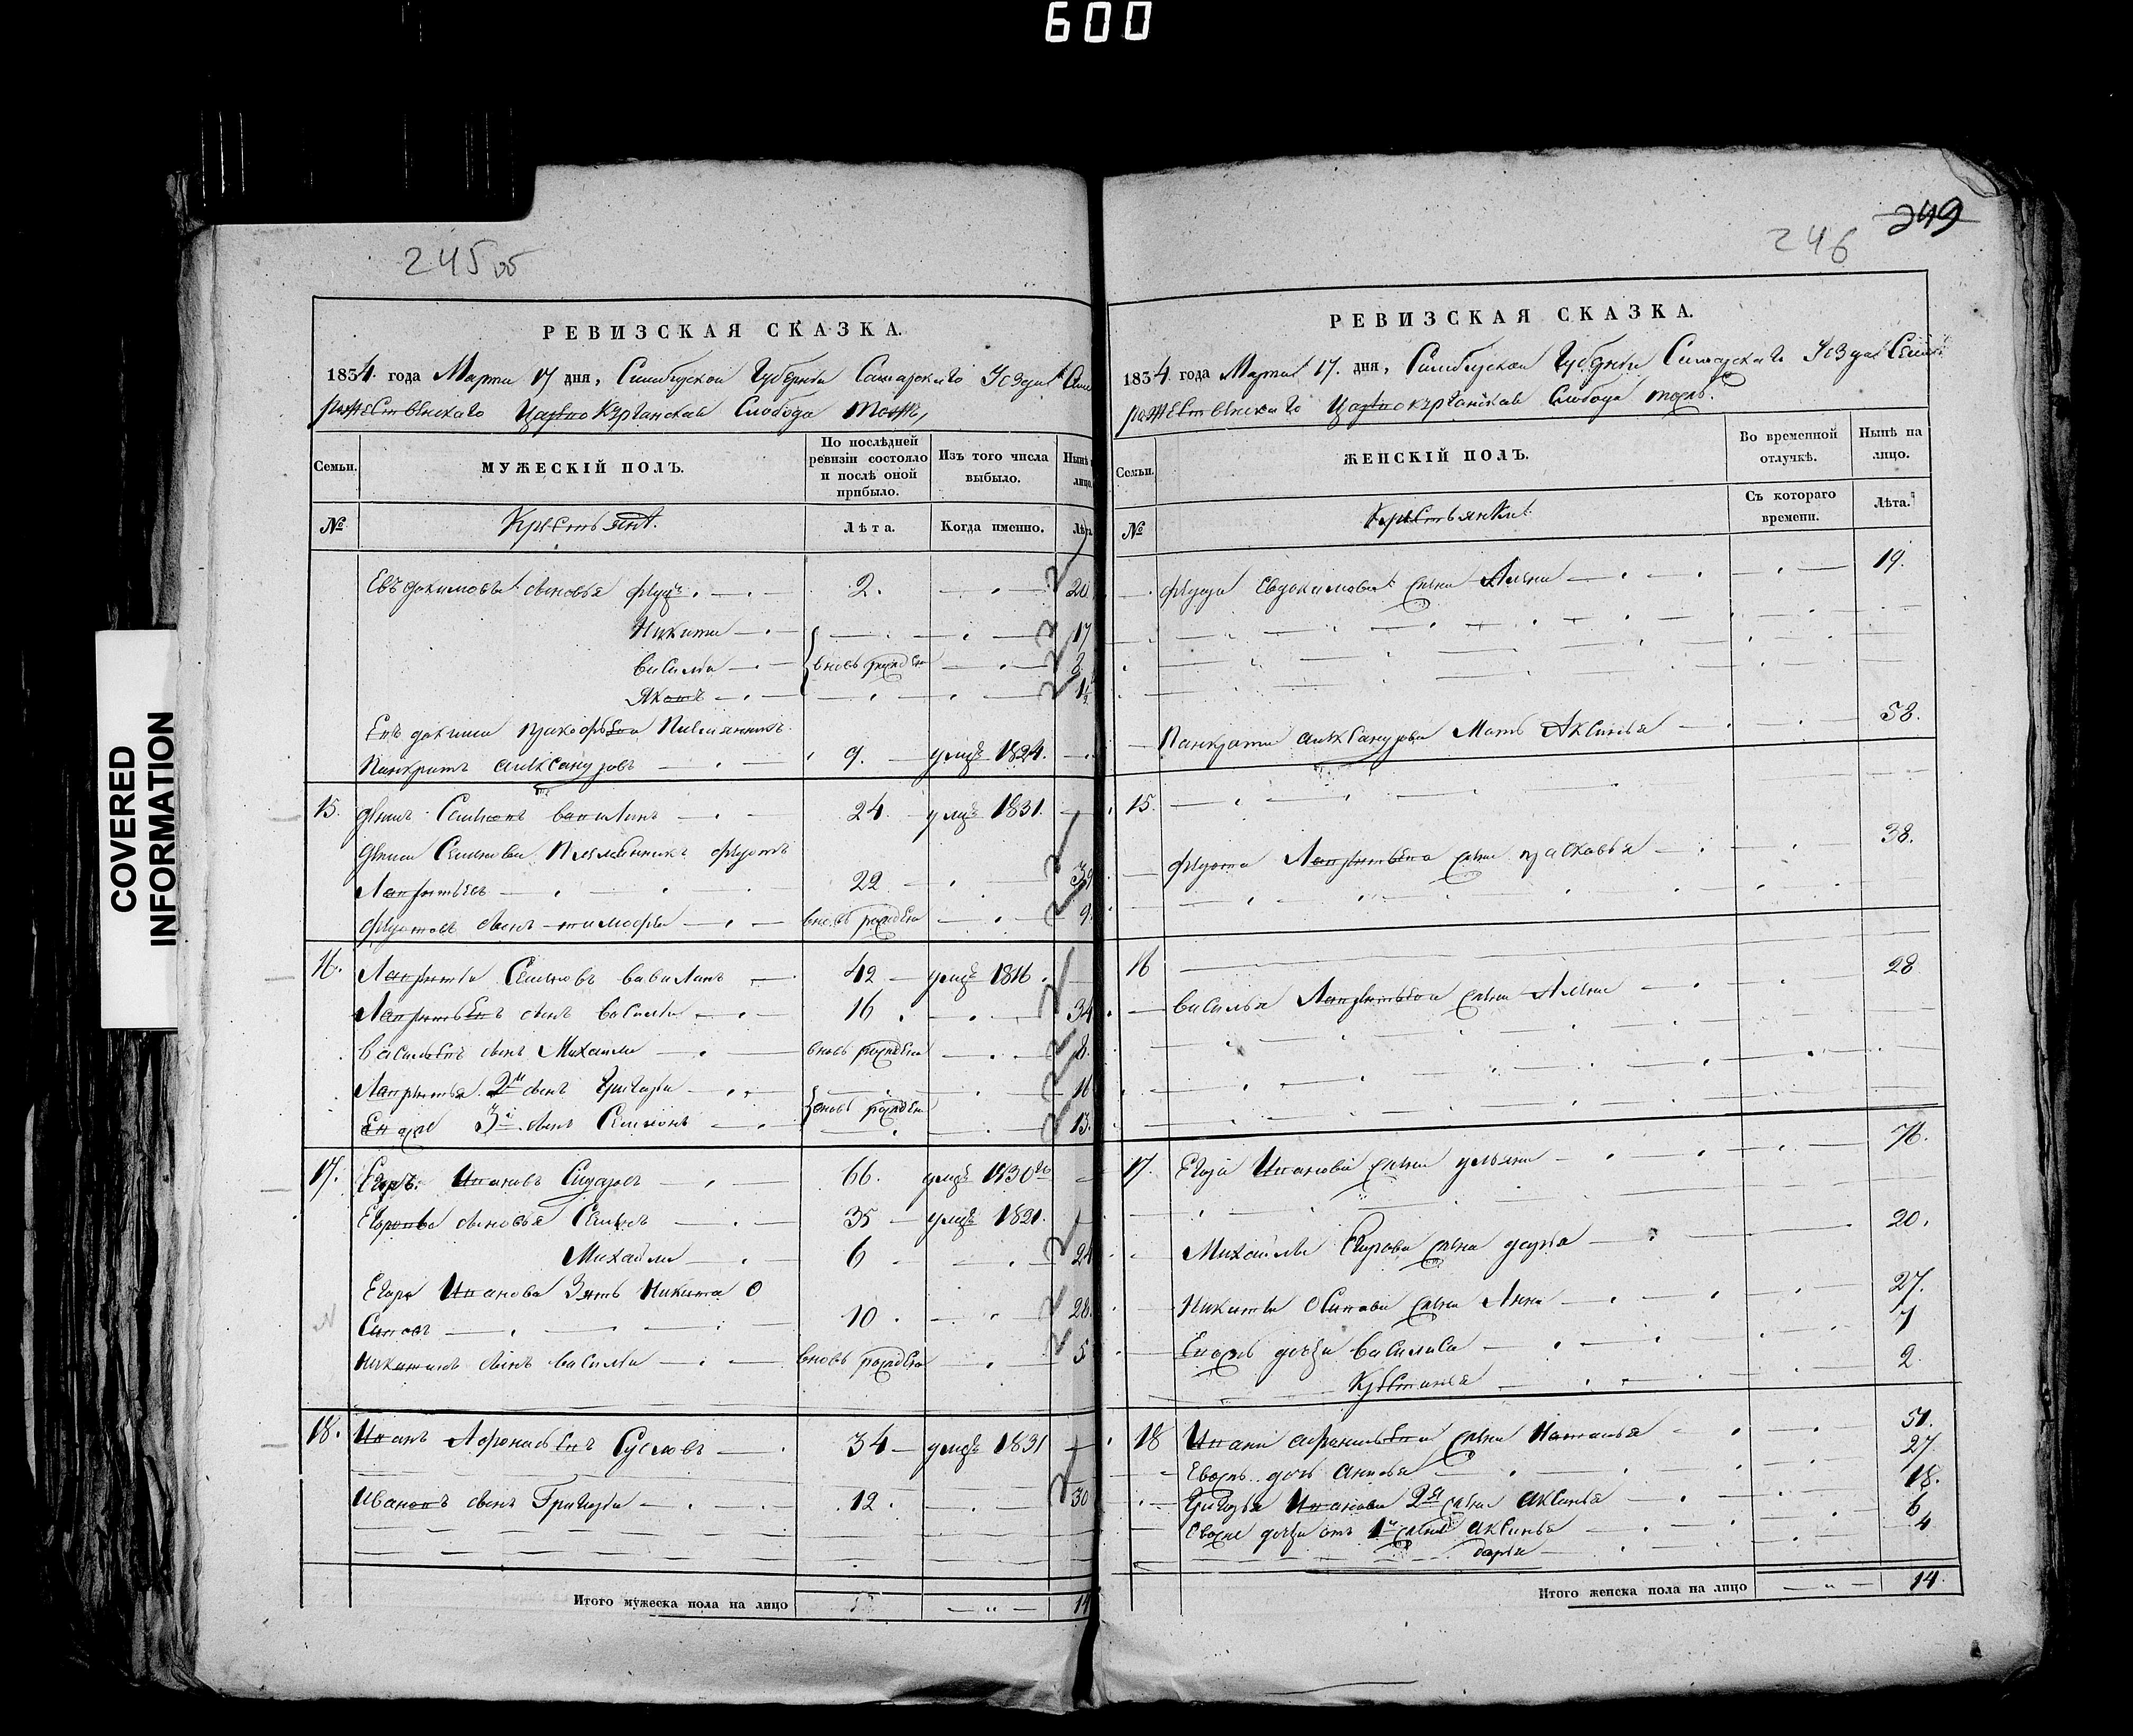 600
245 об
РЕВИЗСКАЯ СКАЗКА.
1834. года Марта 17 дня, Симбирской Губернии Самарскаго Уезда
рожественскаго Слобода тожъ,
Семьи. МУЖЕСКІЙ ПОЛЪ. По послѣдней ревизіи состояло и послѣ оной прибыло. Изъ того числа выбыло. Нынѣ лицо.
№ Крестьянѣ. Лѣта. Когда именно.
Евъдокимовы сыновья 2. 20
Никита 17
василеи вновь рожденъ 8
Яковъ
племянникъ
Панкратъ александровъ 9. умерѣ 1824.
15. Семионъ 24 умерѣ 1831.
Семионова Племянникъ федотъ
Лаврентьевъ 22 39
федотовъ сынъ тимофеи вновь рожденъ 9.
16. Лаврентеи Семионовъ вавилинъ 42 умерѣ 1816
Лаврентьевъ сынъ василеи 16 34
васильевъ сынъ Михаила вновь рожденъ 8.
Лаврентья 2й сынъ григореи 16
Евоже 3й сынъ Семионъ вновь рождены 13.
17. Егоръ Ивановъ Сидаровъ 66. умерѣ 1830го
Егоровы сыновья Семионъ 35 умерѣ 1821.
Михаила 6 24
Егора Иванова Зять Никита О
Сиповъ 10 28.
никитинъ сынъ василеи вновь рожденъ 5
18. Иванъ Афонасьевъ Сусловъ 34 умерѣ 1831
Ивановъ сынъ Григореи 12. 30
Итого мужеска пола на лицо 14
249
246
РЕВИЗСКАЯ СКАЗКА.
1834 года Марта 17. дня, Симбирской Губернии Самарскаго Уезда
рожественскаго Слобода тожъ.
Семьи. ЖЕНСКІЙ ПОЛЪ. Во временной отлучкѣ. Нынѣ на лицо.
№ Крестьянки. Съ котораго времени. Лѣта.
Евдокимова жена Алена 19.
Панкрата александрова Мать Аксинья 58.
15.
федота Лаврентьева жена прасковья 38.
16
василья Лаврентьева жена Алена 28
17. Егора Иванова жена ульяна 76.
Михаилы Егорова жена дарья 20.
Никиты Осипова жена Анна 27.
Евожъ дочери василиса 7
2.
18 Ивана афанасьева жена Наталья 51.
Евожъ дочь 27
Григорья Иванова 2я жена аксинья 18.
Евоже дочери отъ 1й жены аксинья 6
дарья 4
Итого женска пола на лицо 14.
COVERED
INFORMATION